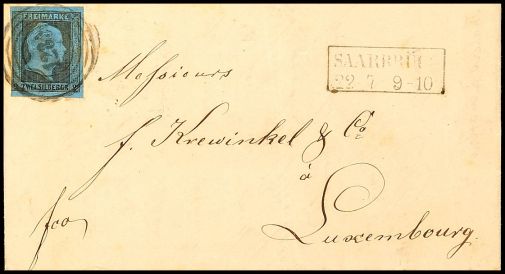 FREIMARKE
ZWEI SILBERGR.
SAARBRÜC
22 7 9-10
Messieurs
f. Krewinkel & Co
à
Luxembourg.
fco